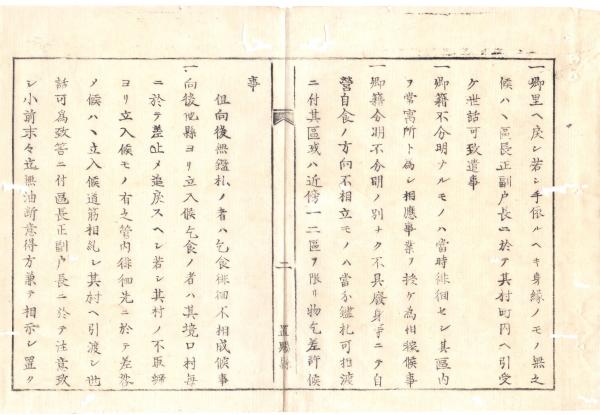 一郷里ヘ戻シ若シ手依ルヘキ身縁ノモノ無之
候ハヽ區長正副戸長ニ於テ其村町内ヘ引受
ケ世話可致遣事
一郷籍不分明ナルモノハ當時徘徊セシ其區内
ヲ常寓所ト為シ相應事業ヲ授ケ為相稼候事
一郷籍分明不分明ノ別ナク不具廢身等ニテ自
營自食ノ方向不相立モノハ當分鑑札可相渡
ニ付其區或ハ近傍一二區ヲ限リ物乞差許候
事
但向後無鑑札ノ者ハ乞食徘徊不相成候事
一向後他縣ヨリ立入候乞食ノ者ハ其境口村毎
ニ於テ差止メ追戻スヘシ若シ其村ノ不取締
ヨリ立入候モノ有之管内徘徊先ニ於テ差咎
メ候ハヽ立入候道筋相糺シ其村ヘ引渡シ世
話可為致筈ニ付區長正副戸長ニ於テ注意致
シ小前末々迄無油断意得方兼テ相示シ置ク
二
置賜縣